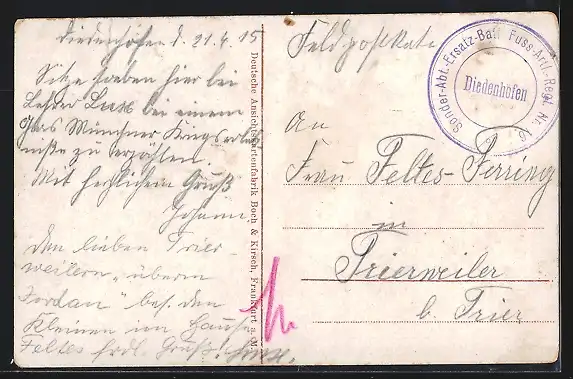 Diedenhofen d. 21.4.15
Sitze soeben hier bei
Lehrer Lux bei einem
Glas Münchner Kriegserleb
nisse zu erzählen.
Mit herzlichem Gruß
Johann
Den lieben Trier-
weilern „überm
Jordan" bes. den
Kleinen im Hause
Feltes frdl. Gruß!
Deutsche Ansichtskartenfabrik Boch & Kirsch, Frankfurt a. M.
Feldpostkarte
Sonder-Abt.-Ersatz-Batl. Fuss-Artl.-Regt. Nr. 16
Diedenhofen
An
Frau Feltes-Ferring
in
Trierweiler
b. Trier